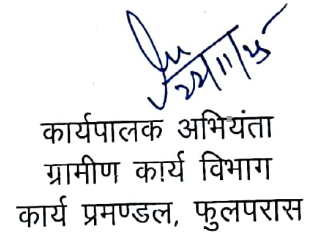 22/11/25
कार्यपालक अभियंता
ग्रामीण कार्य विभाग
कार्य प्रमण्डल, फुलपरास